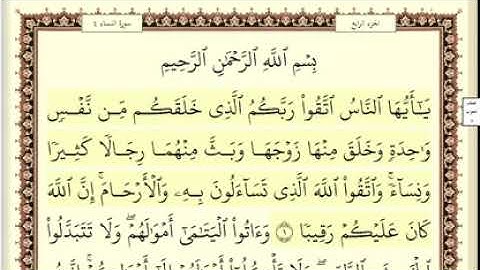 الجزء الرابع
سورة النساء 4
بِسْمِ ٱللَّهِ ٱلرَّحْمَٰنِ ٱلرَّحِيمِ
يَٰٓأَيُّهَا ٱلنَّاسُ ٱتَّقُوا۟ رَبَّكُمُ ٱلَّذِى خَلَقَكُم مِّن نَّفْسٍ
وَٰحِدَةٍ وَخَلَقَ مِنْهَا زَوْجَهَا وَبَثَّ مِنْهُمَا رِجَالًا كَثِيرًا
وَنِسَآءً ۚ وَٱتَّقُوا۟ ٱللَّهَ ٱلَّذِى تَسَآءَلُونَ بِهِۦ وَٱلْأَرْحَامَ ۚ إِنَّ ٱللَّهَ
كَانَ عَلَيْكُمْ رَقِيبًا ١ وَءَاتُوا۟ ٱلْيَتَٰمَىٰٓ أَمْوَٰلَهُمْ ۖ وَلَا تَتَبَدَّلُوا۟